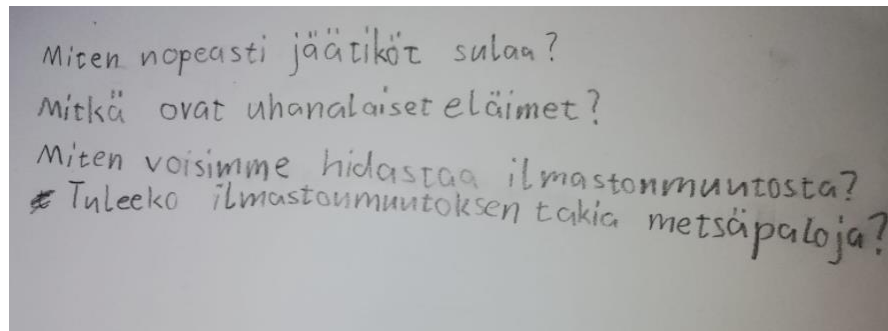 Miten nopeasti jäätiköt sulaa?
Mitkä ovat uhanalaiset eläimet?
Miten voisimme hidastaa ilmastonmuutosta?
Tuleeko ilmastonmuutoksen takia metsäpaloja?